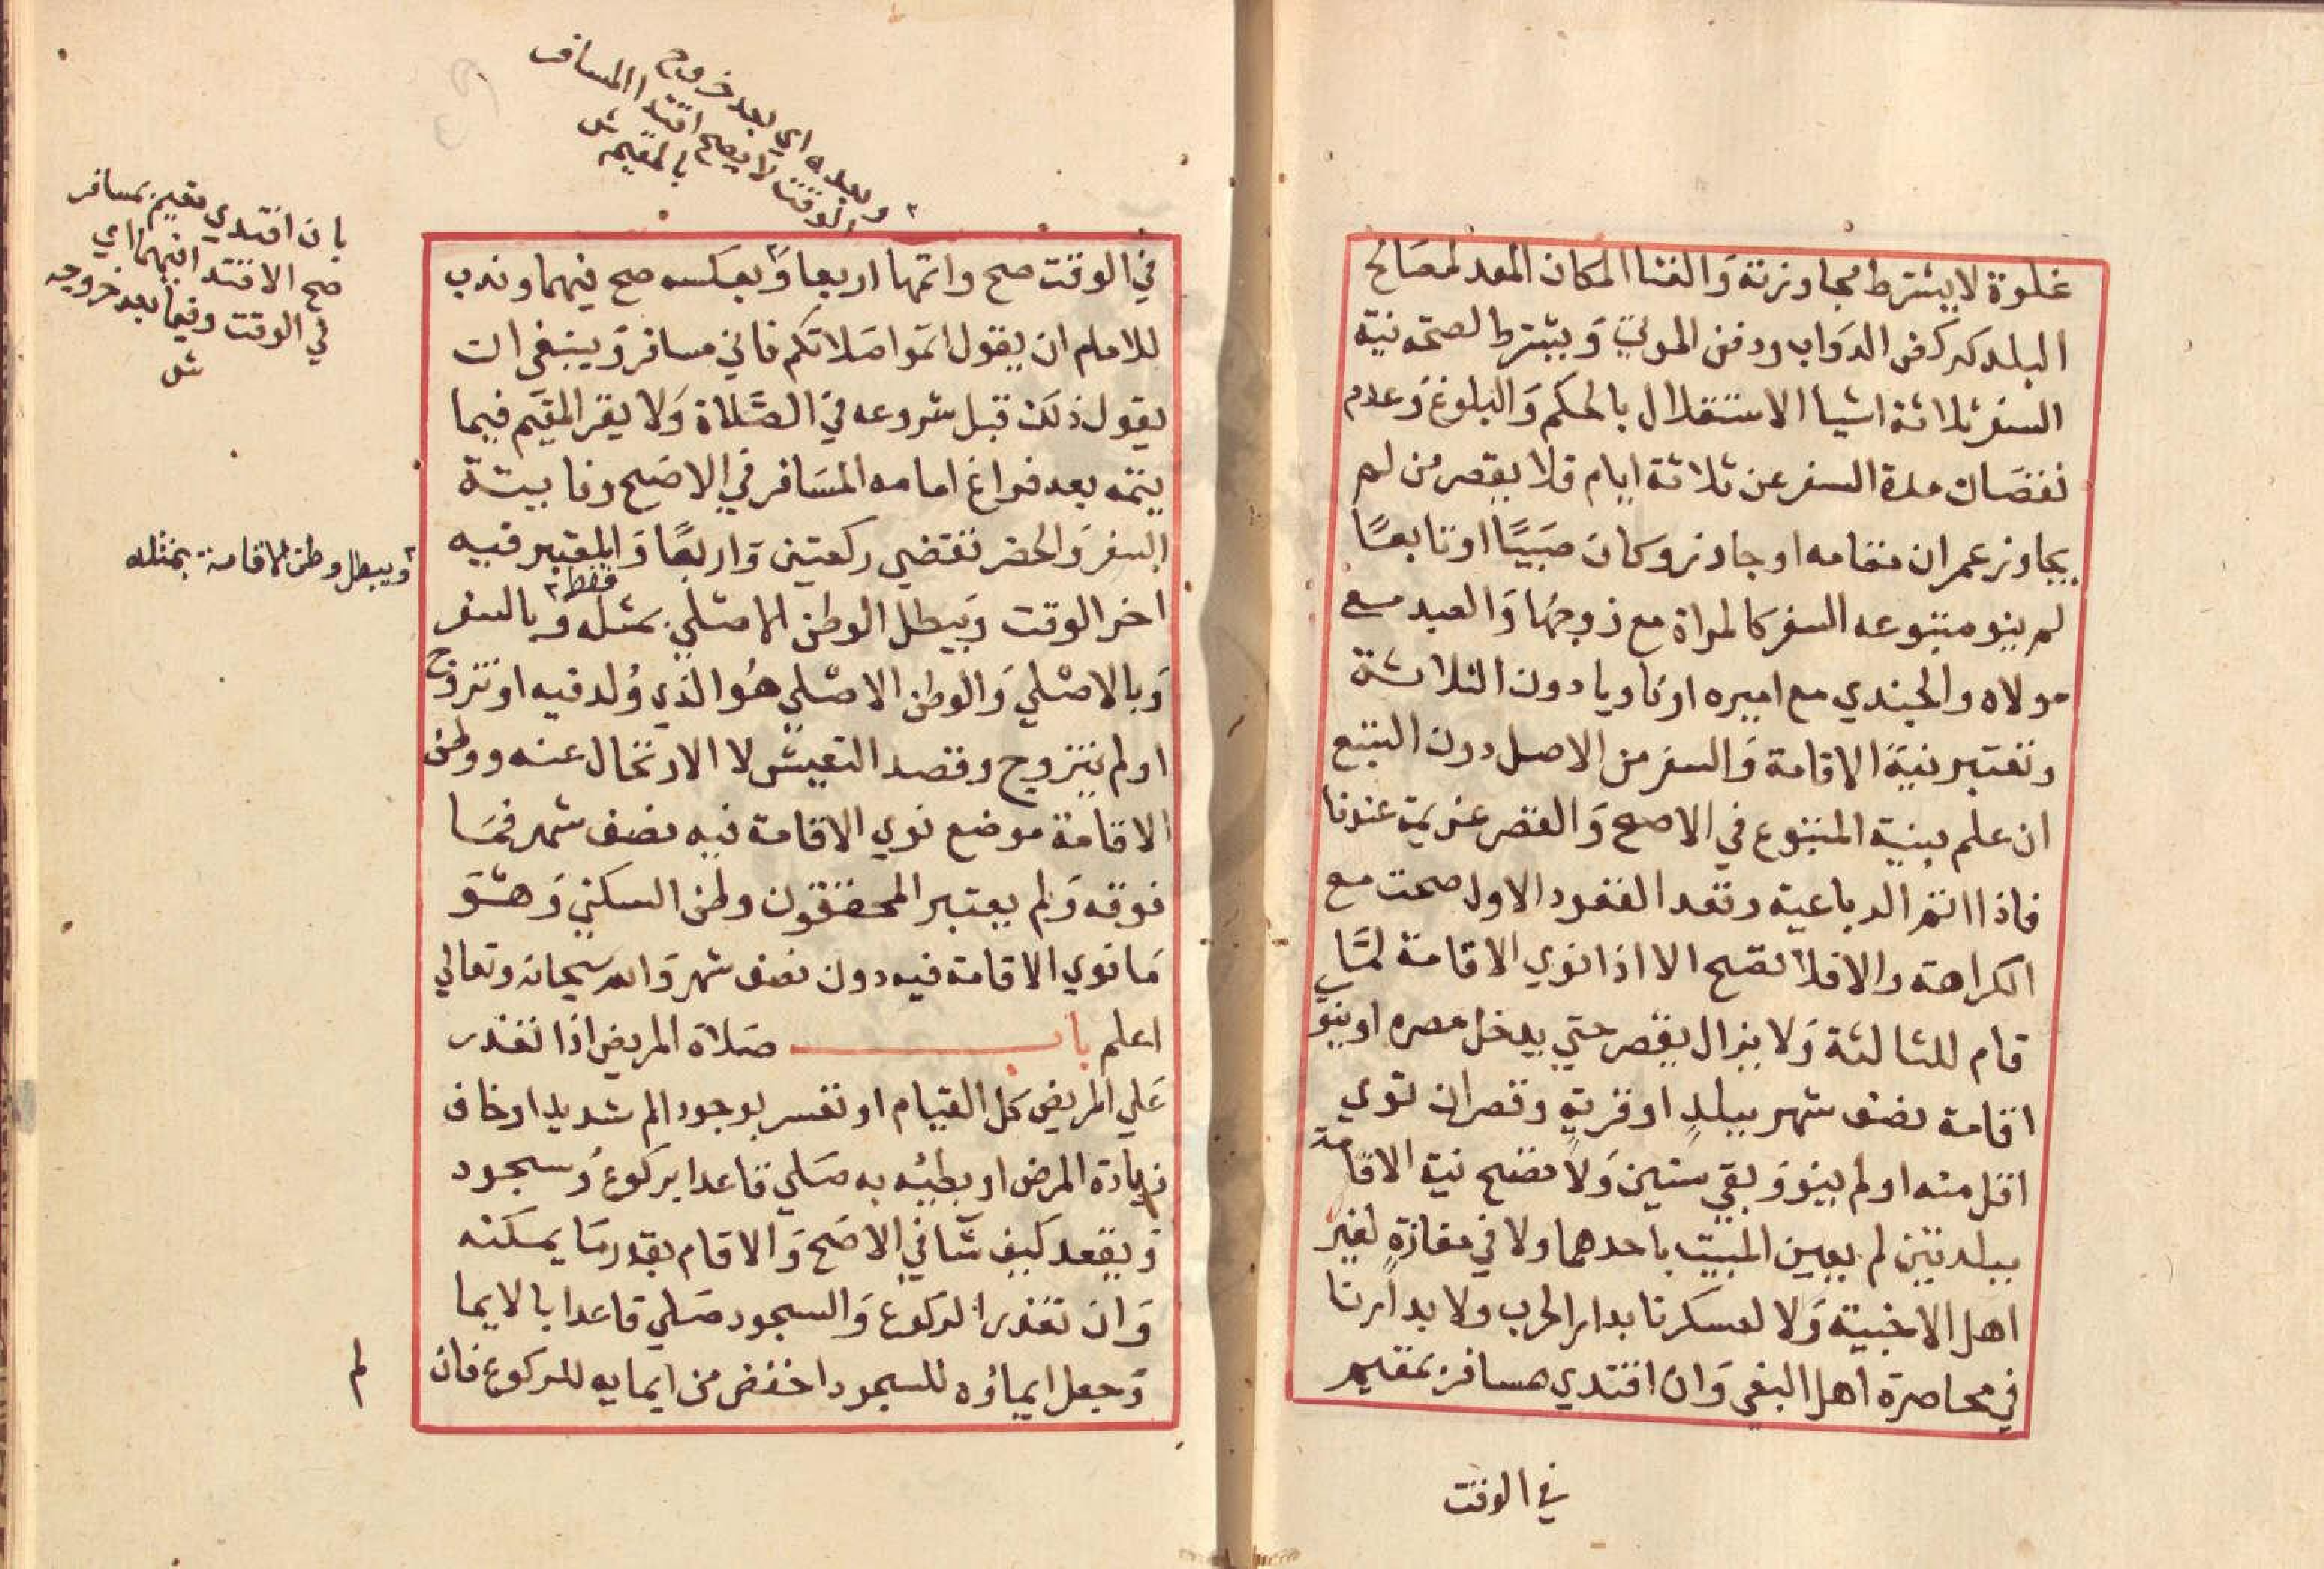 غلوة لا يشترط مجاوزته وَالفنا المكان المعد لمصَالح
البلد كركض الدوَاب ودفن الموتي وَيشترط لصحة نية
السفر ثلاثة اشيا الاستقلال بالحكم وَالبلوغ وَعدم
نقصَان مدة السفر عن ثلاثة ايام فلا يقصر من لم
يجاوز عمران مقامه او جاوز وكان صَبيًا او تابعًا
لم ينو متبوعه السفر كالمراة مع زوجهَا وَالعبد مع
مولاه والجندي مع اميره او ناويا دون الثلاثة
وتعتبر نيةَ الاقامة وَالسفر من الاصل دون التبع
ان علم بنية المتبوع في الاصح وَالقصر عزيمة عندنا
فاذا اتم الرباعية وقعد القعود الاول صحت مع
الكراهة والا فلا تصح الا اذا نوي الاقامة لمَّا
قام للثالثة وَلا يزال يقصر حتي يدخل مصره او ينو
اقامة نصف شهر ببلدٍ او قريةٍ وقصر ان نوي
اقل منه او لم ينو وَبقي سنين وَلا تصح نية الاقامة
ببلدتين لم يعين المبيت باحدهما ولا في مفازةٍ لغير
اهل الاخبية وَلا لعسكرنا بدار الحرب ولا بدارنا
في محاصرة اهل البغي وَان اقتدي مسافر بمقيم
في الوقت
٢ وبعده اي بعد خروج
الوقت لا يصح اقتدا المسافر
بالمقيم ش
في الوقت صح واتمها اربعا وَ٢ بعكسه صح فيهما وندب
للامام ان يقول اتموا صَلاتكم فاني مسافر وَينبغي ان
يقول ذلك قبل شروعه في الصَّلاة وَلا يقر المقيم فيما
يتمه بعد فراغ امامه المسَافر في الاصَح وفايتة
السفر وَالحضر تقضي ركعتين وَاربعًا وَالمعتبر فيه
اخر الوقت وَيبطل الوطن الاصْلي بمثله فقط ٢ وبالسفر
وَبالاصْلي وَالوطن الاصْلي هُو الذي وُلد فيه او تزوج
او لم يتزوج وقصد التعيش لا الارتحال عنه ووطن
الاقامة موضع نوي الاقامة فيه نصف شهر فمَا
فوقه وَلم يعتبر المحققون وطن السكني وَهُو
مَا نوي الاقامة فيه دون نصف شهر وَالله سبحانه وتعالي
اعلم باب صَلاة المريض اذا تعذر
عَلي المريض كل القيام او تعسر بوجود الم شديد او خاف
زيادة المرض او بطئه به صَلي قاعدا بركوع وُسجود
وَيقعد كيف شَا في الاصَح وَالا قام بقدر مَا يمكنه
وَان تعذر الركوع وَالسجود صَلي قاعدا بالايما
وَجعل ايماؤه للسجود اخفض من ايمايه للركوع فان
بان اقتدي مقيم بمسافر
صح الاقتدا فيهما اي
في الوقت وفيما بعد خروجه
ش
٢ ويبطل وطن الاقامة بمثله
لم